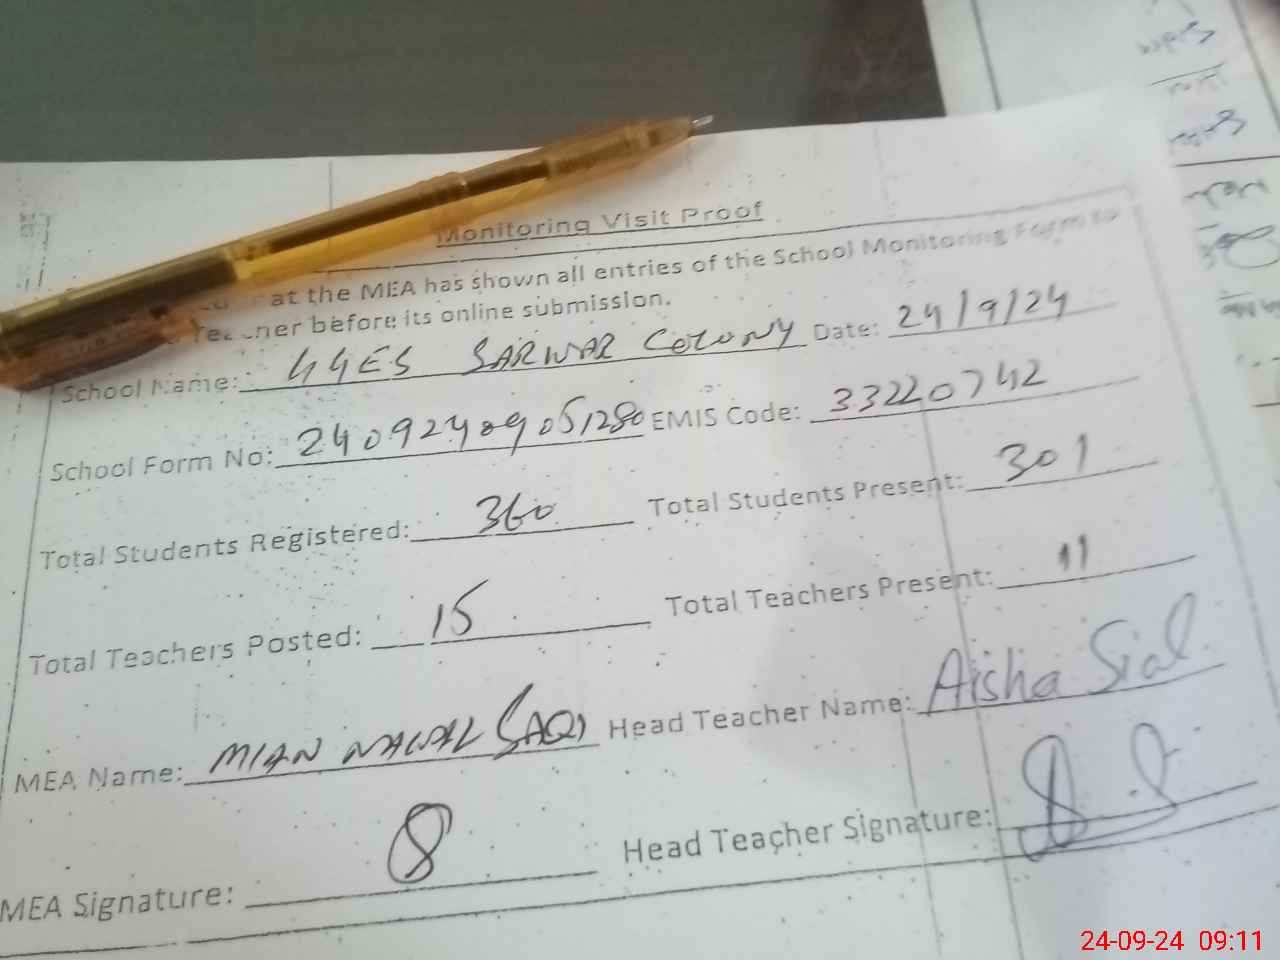 Monitoring Visit Proof
at the MEA has shown all entries of the School Monitoring Form to
before its online submission.
School Name: GGES SARWAR COLONY Date: 24/9/24
School Form No: 24092409051280 EMIS Code: 33220742
Total Students Registered: 360 Total Students Present: 301
Total Teachers Posted: 15 Total Teachers Present: 11
MEA Name: MIAN Head Teacher Name: Aisha Sial
MEA Signature: Head Teacher Signature:
24-09-24 09:11